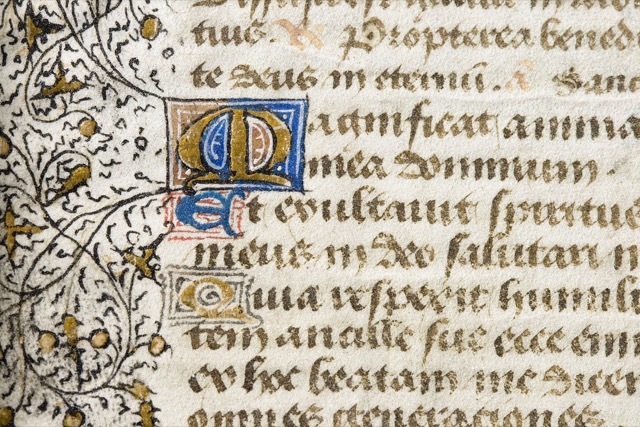 tius. V. Propterea bened
te deus in eternū. A. Sanc
Magnificat anima
mea dominum.
Et exultavit spiritus
meus in deo salutari m
Quia respexit humili
tem ancille sue ecce enim
ex hoc beatam me dicen
omnes generaciones